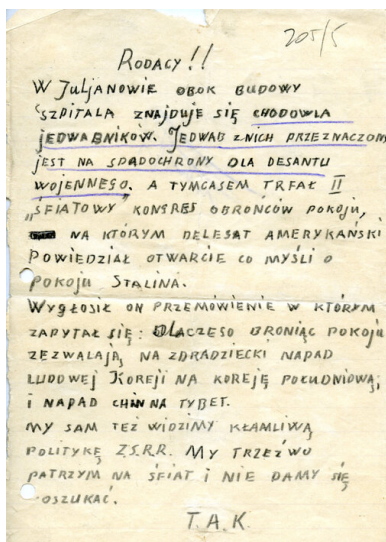 205/5
RODACY!!
W JULJANOWIE OBOK BUDOWY
SZPITALA ZNAJDUJE SIĘ CHODOWLA
JEDWABNIKOW. JEDWAB Z NICH PRZEZNACZON
JEST NA SPADOCHRONY DLA DESANTU
WOJENNEGO. A TYMCASEM TRFAŁ II
„ŚFIATOWY" KONGRES OBROŃCÓW POKOJU,
NA KTÓRYM DELEGAT AMERYKAŃSKI
POWIEDZIAŁ OTWARCIE CO MYŚLI O
POKOJU STALINA.
WYGŁOSIŁ ON PRZEMÓWIENIE W KTÓRYM
ZAPYTAŁ SIĘ: DLACZEGO BRONIĄC POKOJU
ZEZWALAJĄ NA ZDRADZIECKI NAPAD
LUDOWEJ KOREJI NA KOREJĘ POŁUDNIOWĄ,
I NAPAD CHIN NA TYBET.
MY SAM TEŻ WIDZIMY KŁAMLIWĄ
POLITYKĘ Z.S.R.R. MY TRZEŹWO
PATRZYM NA ŚFIAT I NIE DAMY SIĘ
OSZUKAĆ.
T.A.K.